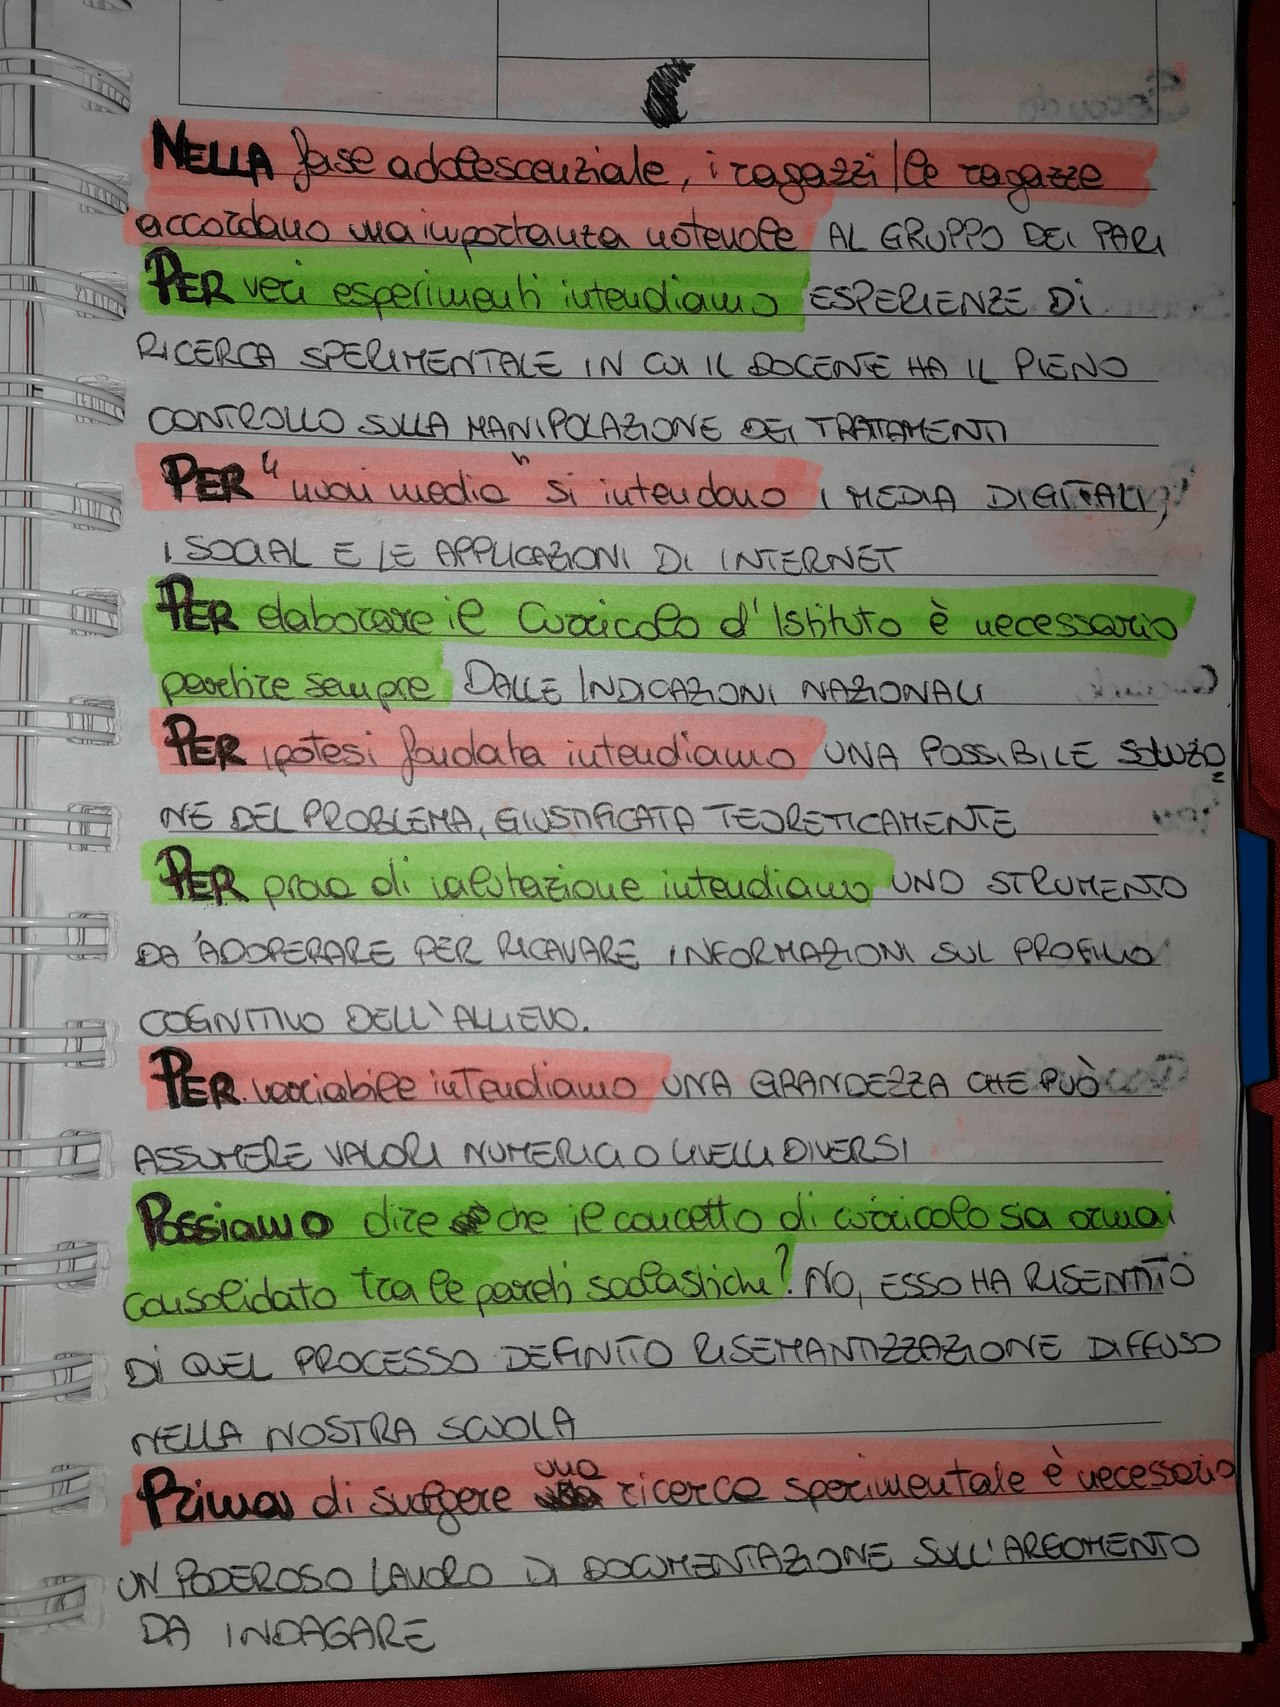 NELLA fase adolescenziale, i ragazzi/le ragazze
accordano una importanza notevole AL GRUPPO DEI PARI
PER veri esperimenti intendiamo ESPERIENZE DI
RICERCA SPERIMENTALE IN CUI IL DOCENTE HA IL PIENO
CONTROLLO SULLA MANIPOLAZIONE DEI TRATTAMENTI
PER "nuovi media" si intendono I MEDIA DIGITALI,
I SOCIAL E LE APPLICAZIONI DI INTERNET
PER elaborare il Curricolo d'Istituto è necessario
partire sempre DALLE INDICAZIONI NAZIONALI
PER ipotesi fondata intendiamo UNA POSSIBILE SOLUZIO
NE DEL PROBLEMA, GIUSTIFICATA TEORETICAMENTE
PER prova di valutazione intendiamo UNO STRUMENTO
DA ADOPERARE PER RICAVARE INFORMAZIONI SUL PROFILO
COGNITIVO DELL'ALLIEVO.
PER variabile intendiamo UNA GRANDEZZA CHE PUÒ
ASSUMERE VALORI NUMERICI O LIVELLI DIVERSI
Possiamo dire che il concetto di curricolo sia ormai
consolidato tra le pareti scolastiche? NO, ESSO HA RISENTITO
DI QUEL PROCESSO DEFINITO RISEMANTIZZAZIONE DIFFUSO
NELLA NOSTRA SCUOLA
Prima di svolgere una ricerca sperimentale è necessario
UN PODEROSO LAVORO DI DOCUMENTAZIONE SULL'ARGOMENTO
DA INDAGARE